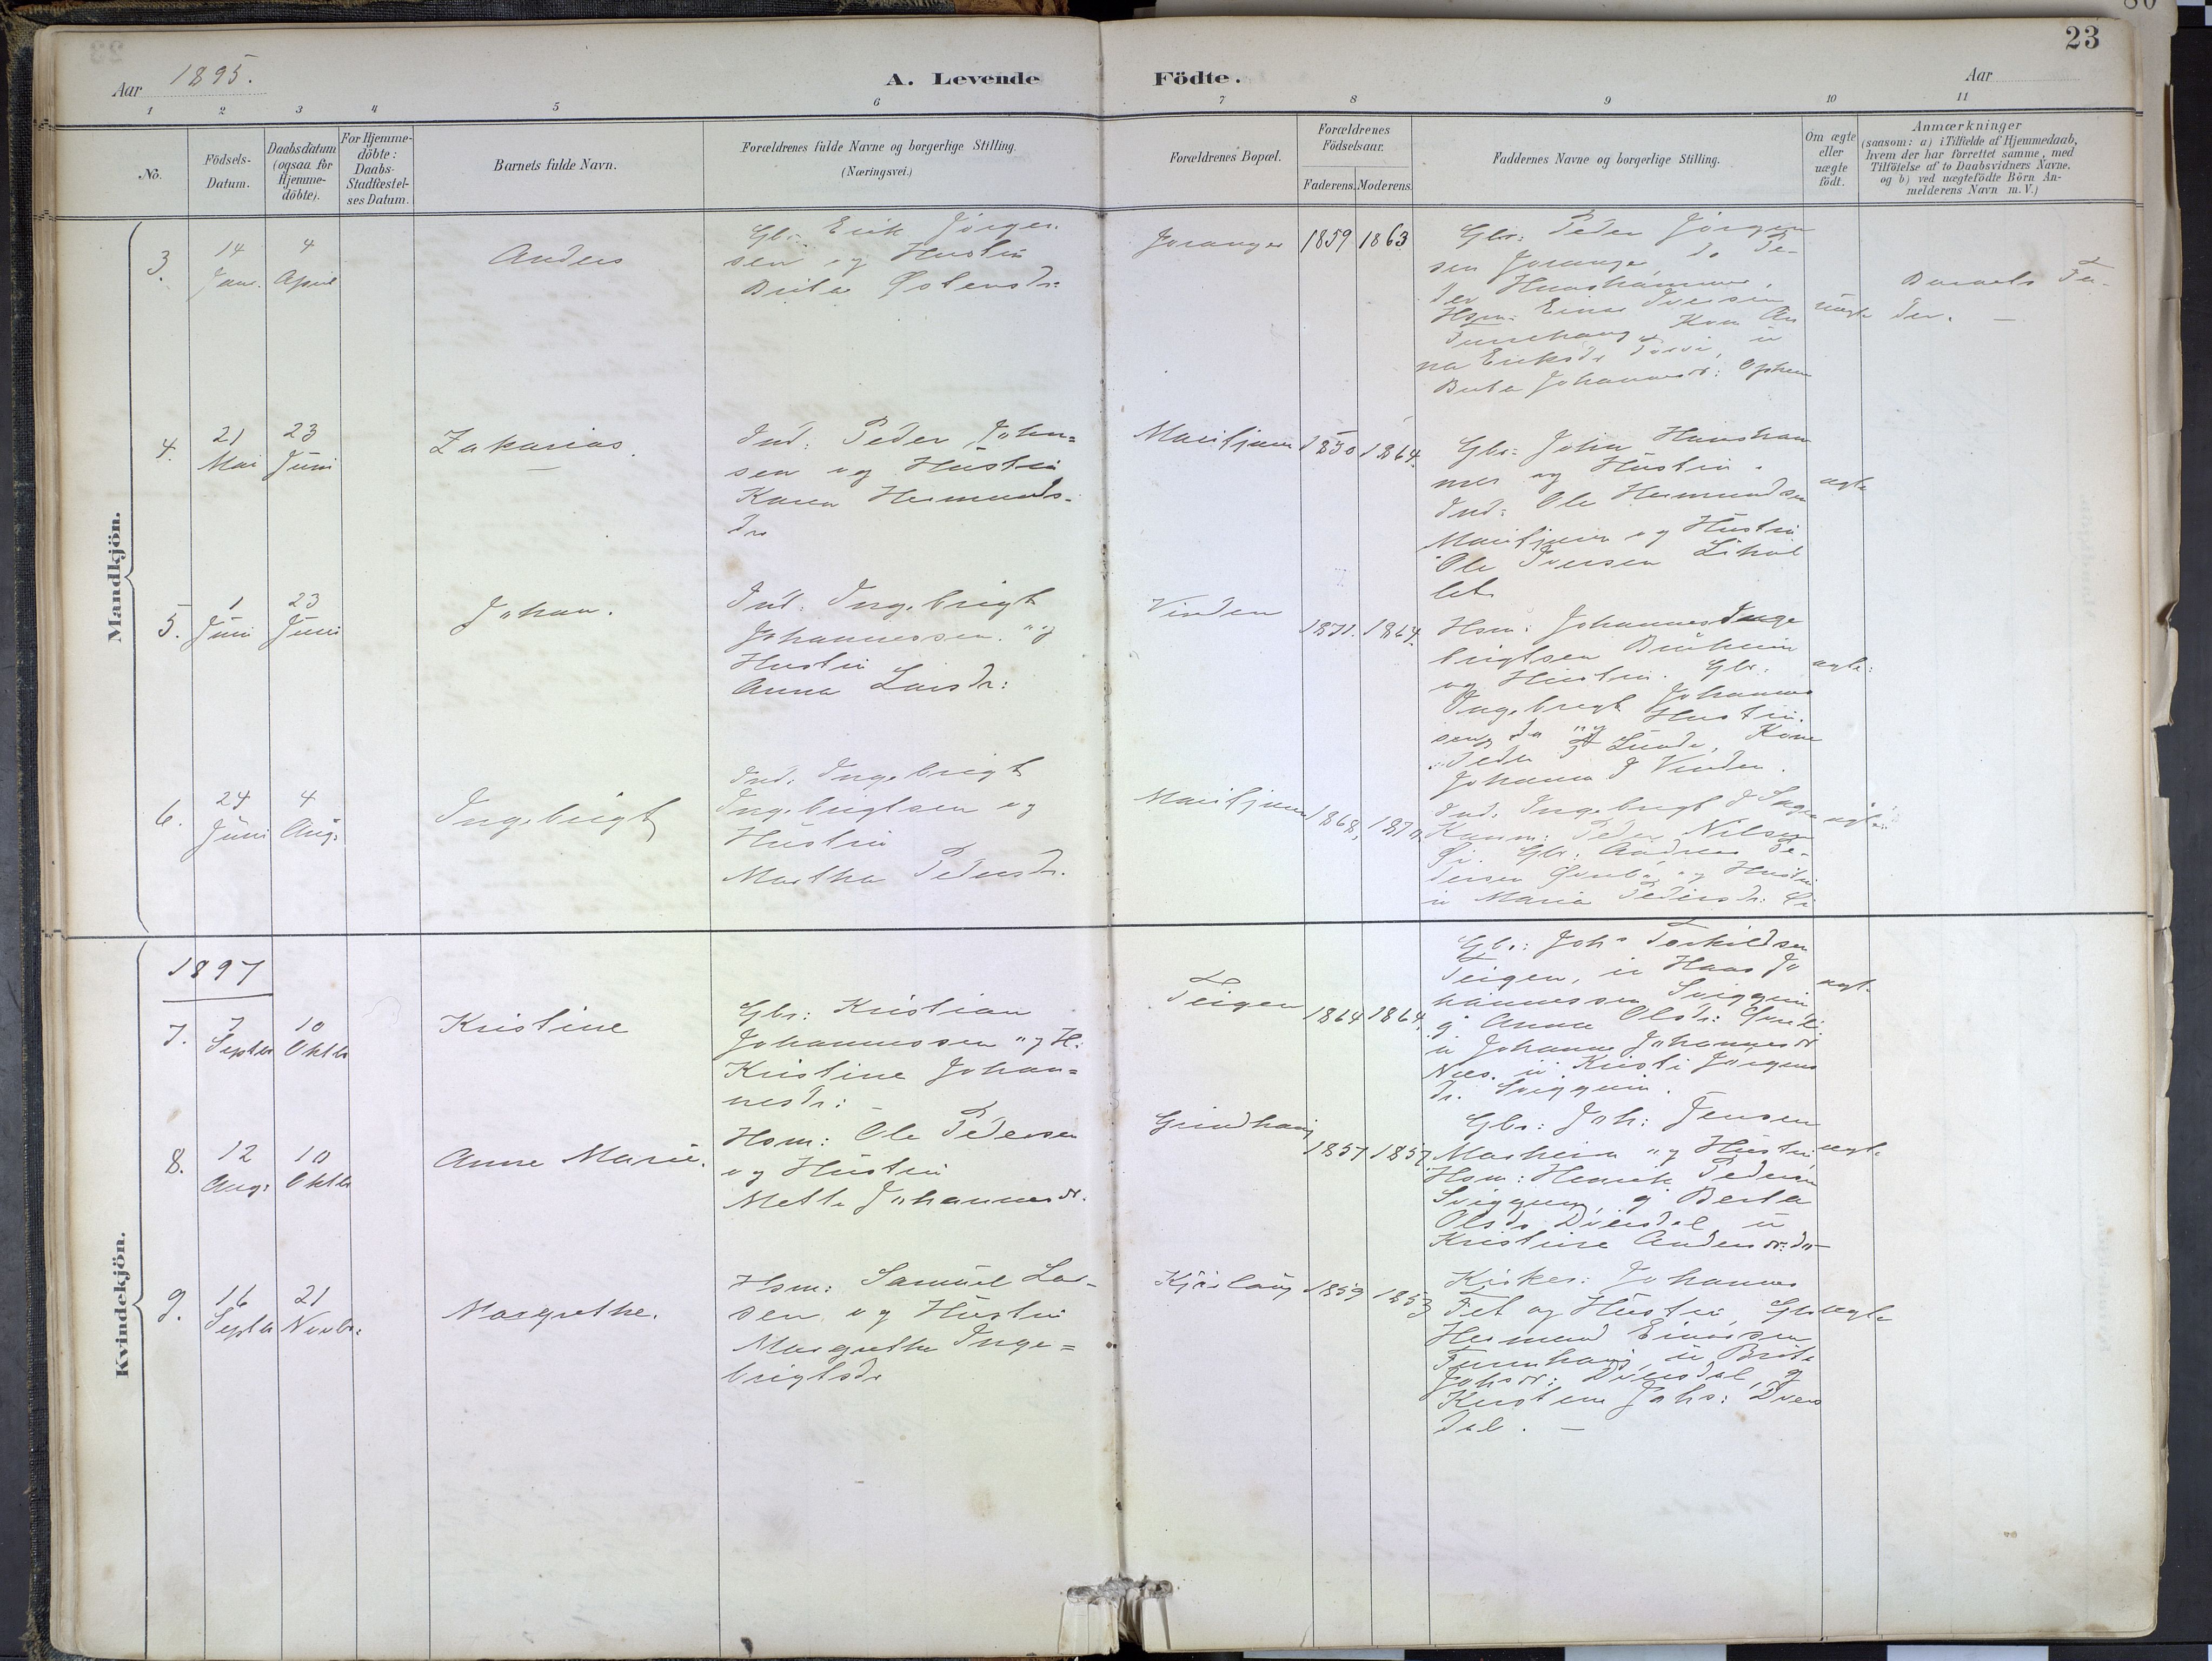 23
Aar 1895.
A. Levende Födte.
Aar
1 2 3 4 5 6 7 8 9 10 11
No.
Födsels-
Datum.
Daabsdatum
(ogsaa for
Hjemme-
döbte).
For Hjemme-
döbte:
Daabs-
Stadfæstel-
ses Datum.
Barnets fulde Navn.
Forældrenes fulde Navne og borgerlige Stilling.
(Næringsvei.)
Forældrenes Bopæl.
Forældrenes
Födselsaar.
Faderens. Moderens.
Faddernes Navne og borgerlige Stilling.
Om ægte
eller
uægte
födt.
Anmærkninger
(saasom: a) i Tilfælde af Hjemmedaab,
hvem der har forrettet samme, med
Tilföielse af to Daabsvidners Navne,
og b) ved uægtefödte Börn An-
melderens Navn m. V.)
Mandkjön.
3.
14
Jan.
4
April
Anders
Gbr. Erik Jörgen-
sen og Hustru
Brita Østensdr.
Joranger
1859 1863
Gbr: Peder Jörgen
sen Joranger, do Pe-
der
Hsm. Einar Iversen
Kone An
na Eriksdr
Johannesdr:
Barnets Fa-
der. —
4.
21
Mai
23
Juni
Zakarias.
Ind: Peder John=
sen og Hustru
Karen Hermunds-
dr.
Marifjæren
1850 1864.
Gbr: John Hunsham
mer og Hustru.
Ind: Ole Hermundsen
Marifjæren og Hustru
Ole Iversen Lihol
let.
ægte
5.
1
Juni
23
Juni
Johan.
Ind: Ingebrigt
Johannessen. og
Hustru
Anna Larsdr:
Vinden
1871. 1864.
Hsm: Johannes Inge
brigtsen
og Hustru. Gbr.
Ingebrigt Johannes
sen og Hustru.
Peder Lunde, Kone
Johanna J Vinden.
ægte:
6.
24
Juni
4
Aug:
Ingebrigt
Ind: Ingebrigt
Ingebrigtsen og
Hustru
Martha Pedersdr.
Marifjæren
1868, 1870.
Ind. Ingebrigt J
Peder Nilsen
Øi. Gbr: Andreas Pe-
dersen og Hustru
u Maria Pedersdr: Øi
ægte:
Kvindekjön.
1897
7.
7
Septbr
10
Oktbr
Kristine
Gbr: Kristian
Johannessen og H:
Kristine Johan=
nesdr:
Teigen
1864 1864.
Gbr: Johs Torkildsen
Teigen, u Hans Jo
hannessen Sviggum
g Anna Olsdr:
u Johanne Johannesdr
Næs. u Kristi Jörgens
dr. Sviggum.
ægte
8.
12
Aug:
10
Oktbr
Anne Marie.
Hsm: Ole Pedersen
og Hustru
Mette Johannesdr.
Grindhaug
1857 1857
Gbr: Joh: Jensen
Marheim og Hustru
Hsm: Henrik Pedersen
Sviggum, g Berta
Olsdr Dversdal, u
Kristine Andersdr: do—
ægte
9.
16
Septbr
21
Novbr:
Margrethe.
Hsm: Samuel Lar-
sen og Hustru
Margrethe Inge=
brigtsdr
Kjærlaug
1859 1853
Kirkes: Johannes
Fet og Hustru, Gbr
Hermund Einarsen
u Brita
Johsdr: Dversdal, g
Kristen Johs: Dvers
dal. —
ægte